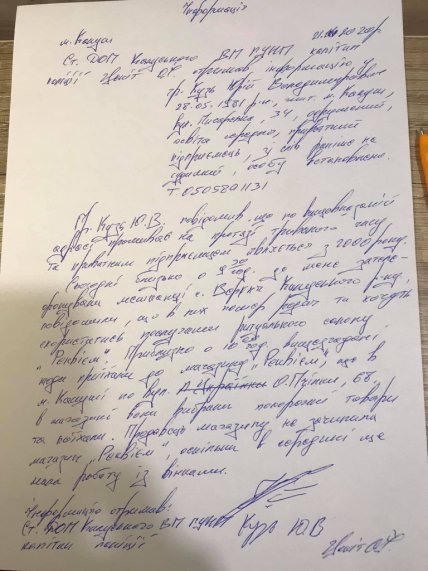 Інформація
м. Калуш
Ст. ДОМ Калуського ВМ ПУНП капітан
поліції Цвіт О.Р. отримав інформацію від
гр. Кузь Юрій Володимирович
28.05.1981 р.н., жит. м. Калуш,
вул. Писарська, 34, одружений,
освіта середня, приватний
підприємець, зі слів раніше не
судимий, особу встановлено.
Т. 0505801131
Гр. Кузь Ю.В. повідомив що по вищевказаній
адресі проживає на протязі тривалого часу
та приватним підприємцем являється з 2000 року.
Сьогодні близько о 9 год. до мене зателе-
фонували мешканці с. Калуського р-ну,
повідомили, що в них помер родич та хочуть
скористатись послугами ритуального салону
"Реквієм". Приблизно о 10 год. вищезгадані
люди приїхали до магазину "Реквієм", що в
м. Калуші по вул. 68,
в магазині вони вибрали похоронні товари
та поїхали. Продавець магазину не зачинила
магазин "Реквієм" оскільки в середині ще
мала роботу із вінками.
Інформацію отримав:
Ст. ДОМ Калуського ВМ ПУНП Кузь Ю.В
капітан поліції Цвіт О.Р.